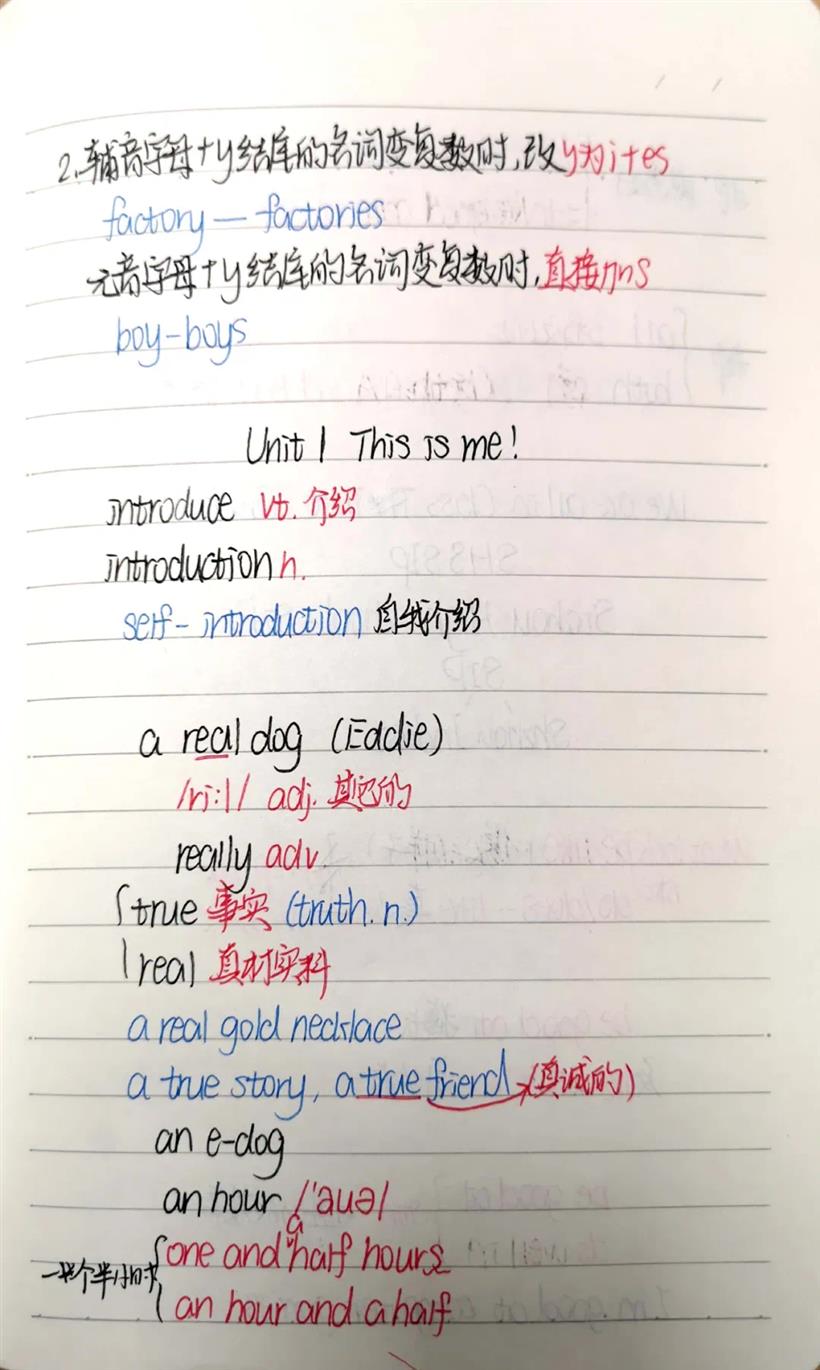 2.辅音字母+y结尾的名词变复数时,改y为i+es
factory — factories
元音字母+y结尾的名词变复数时,直接加s
boy-boys
Unit 1 This is me!
introduce vt. 介绍
introduction n.
self-introduction 自我介绍
a real dog (Eddie)
/ri:l/ adj. 真的
really adv.
true 事实 (truth. n.)
real 真材实料
a real gold necklace
a true story, a true friend (真诚的)
an e-dog
an hour /'auə/
one and a half hours
一个半小时
an hour and a half